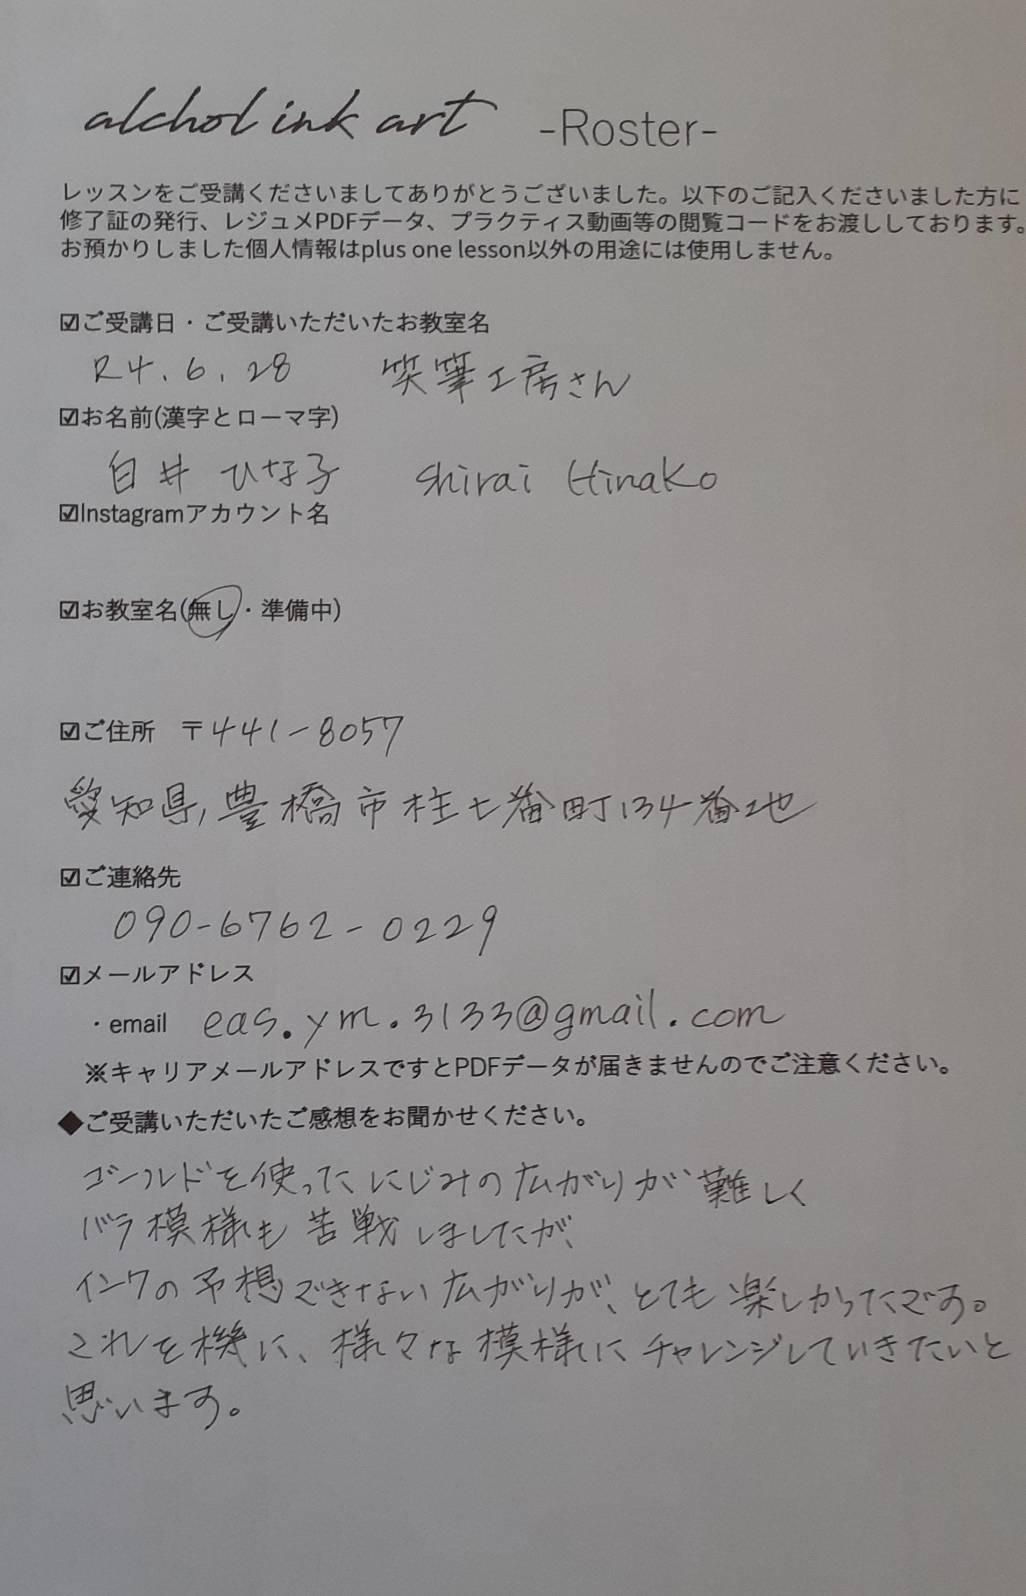 alchol ink art -Roster-
レッスンをご受講くださいましてありがとうございました。以下のご記入くださいました方に
修了証の発行、レジュメPDFデータ、プラクティス動画等の閲覧コードをお渡ししております。
お預かりしました個人情報はplus one lesson以外の用途には使用しません。
☑ご受講日・ご受講いただいたお教室名
R4.6.28 笑華工房さん
☑お名前(漢字とローマ字)
白井 ひな子 Shirai Hinako
☑Instagramアカウント名
☑お教室名(無し・準備中)
☑ご住所 〒441-8057
愛知県,豊橋市柱七番町134番地
☑ご連絡先
090-6762-0229
☑メールアドレス
・email eas.ym.3133@gmail.com
※キャリアメールアドレスですとPDFデータが届きませんのでご注意ください。
◆ご受講いただいたご感想をお聞かせください。
ゴールドを使ったにじみの広がりが難しく
バラ模様も苦戦しましたが、
インクの予想できない広がりが、とても楽しかったです。
これを機に、様々な模様にチャレンジしていきたいと
思います。